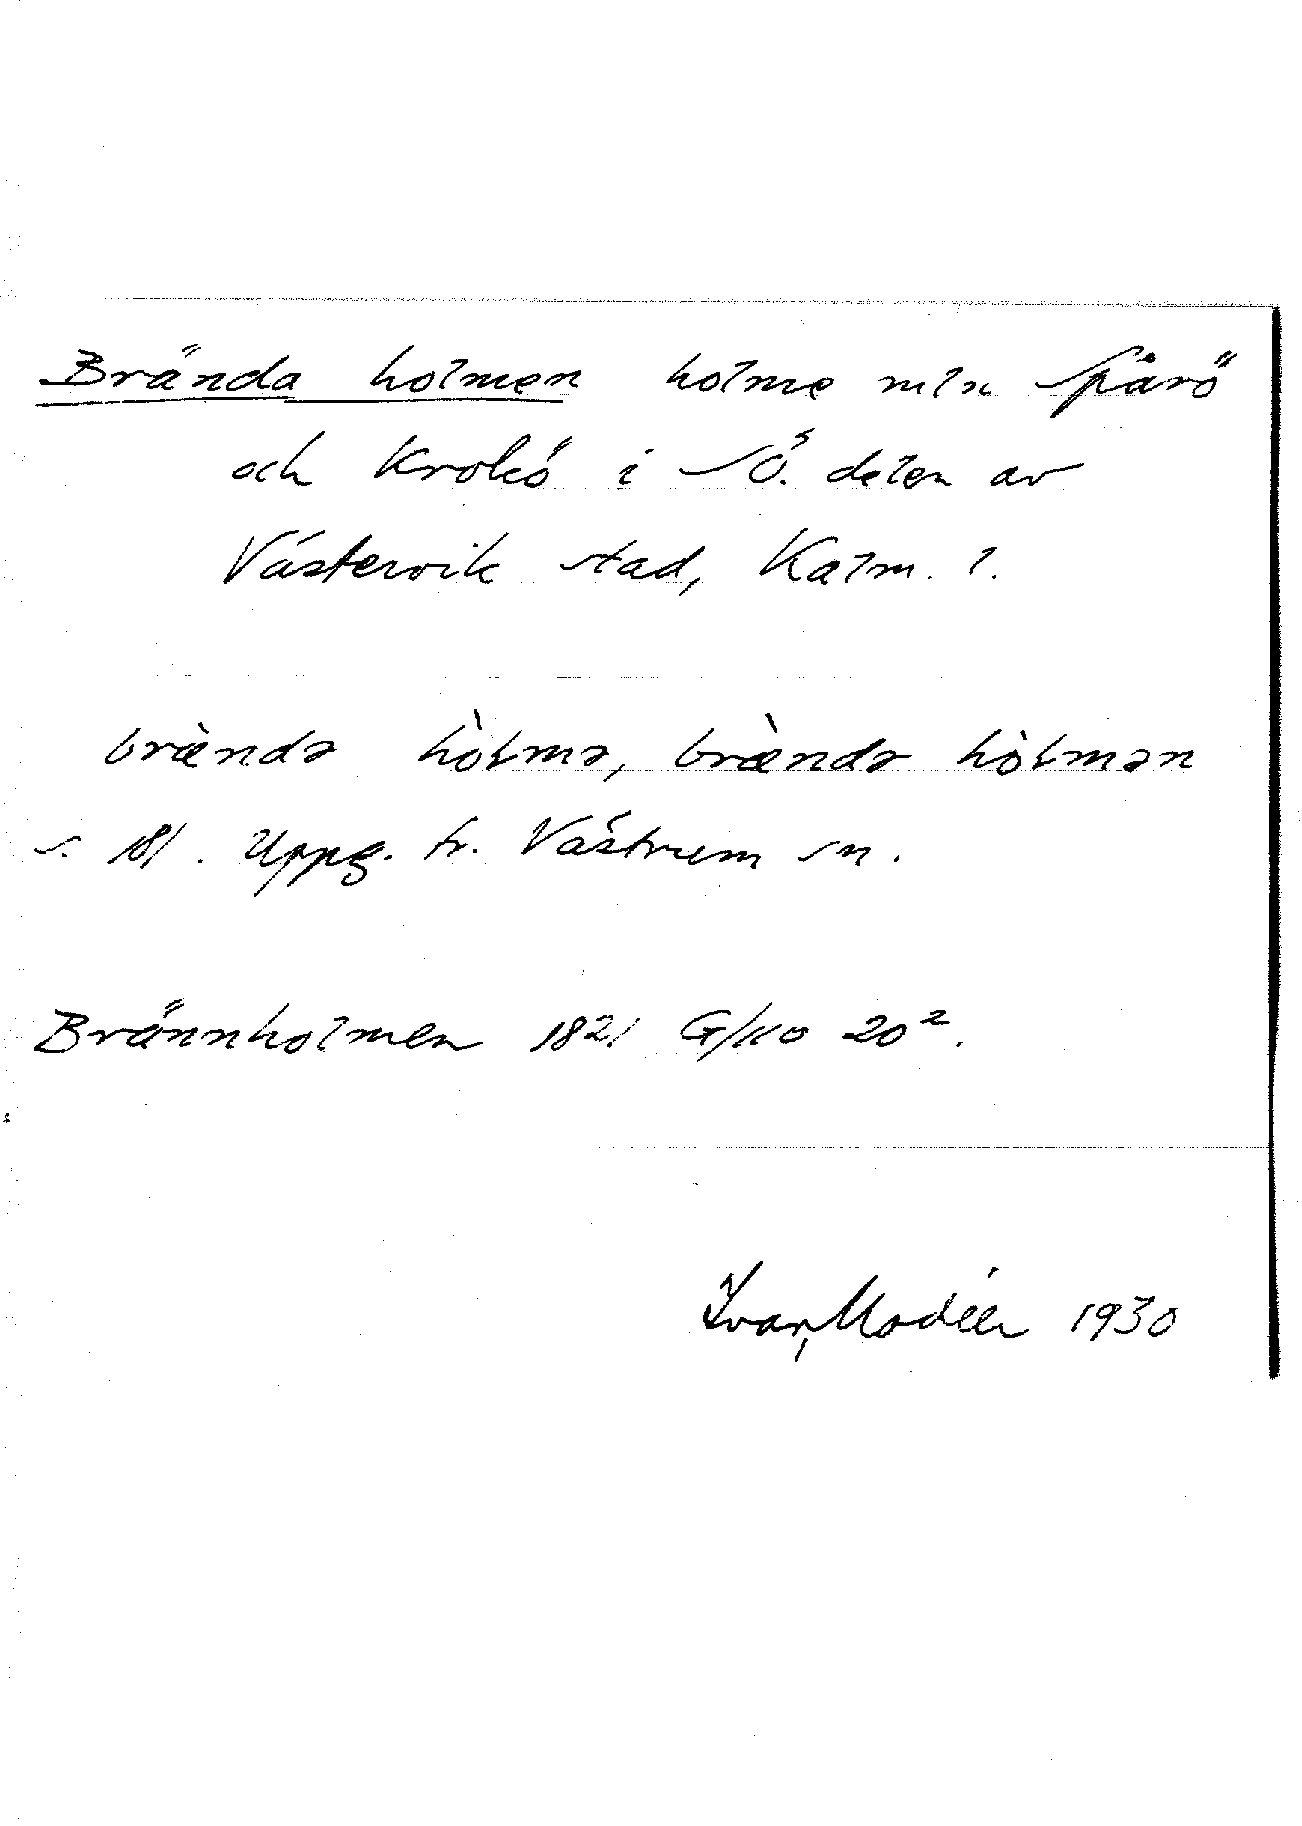 Brända holmen holme mln Spårö
och Krokö i SÖ. delen av
Västervik stad, Kalm. l.
brænndə hòlmə, brændə hòlmən
s. 181. Uppg. fr. Västrum sn.
Brännholmen 1821 G/KO 20².
Ivar Modéer 1930